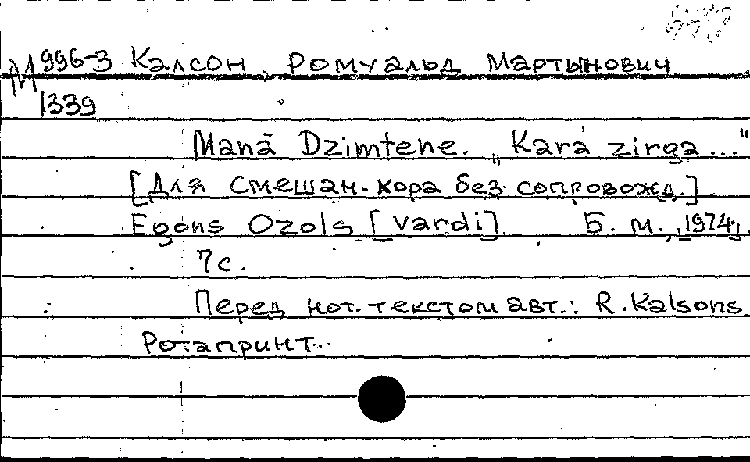 М 996-3 Калсон, Ромуальд Мартынович
1339
Manā Dzimtene. „Kara zirga..."
[Для смешан. хора без сопровожд.]
Egons Ozols [vardi]. Б. м., 1974,
7 с.
Перед нот. текстом авт.: R. Kalsons
Ротапринт.